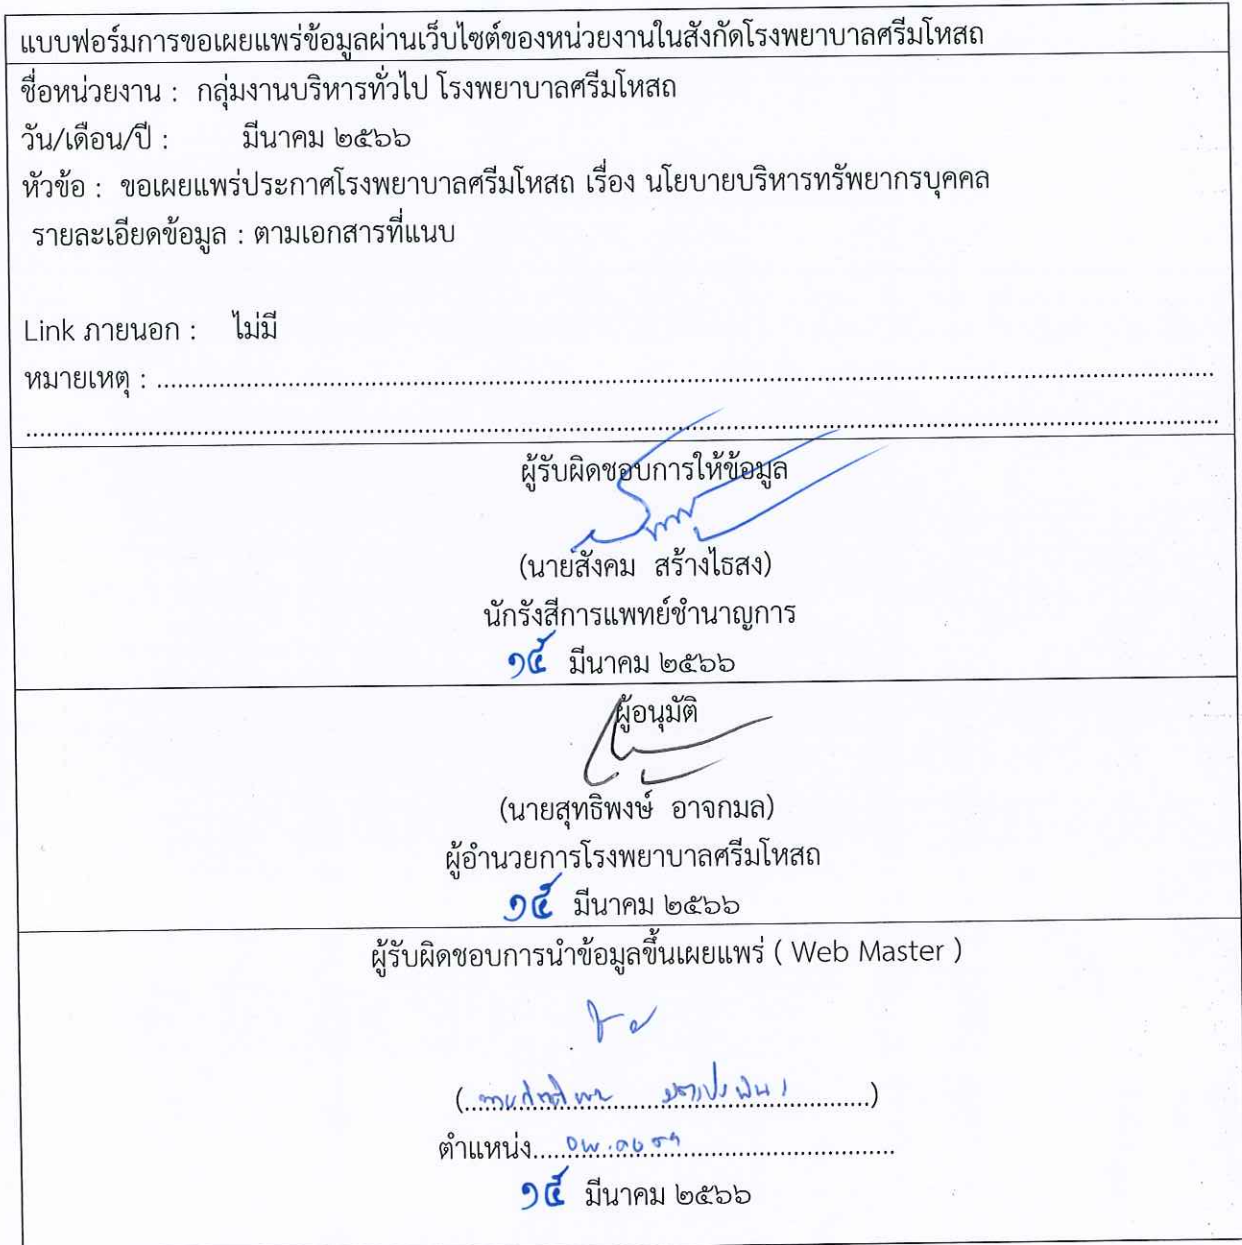 แบบฟอร์มการขอเผยแพร่ข้อมูลผ่านเว็บไซต์ของหน่วยงานในสังกัดโรงพยาบาลศรีมโหสถ
ชื่อหน่วยงาน : กลุ่มงานบริหารทั่วไป โรงพยาบาลศรีมโหสถ
วัน/เดือน/ปี : มีนาคม ๒๕๖๖
หัวข้อ : ขอเผยแพร่ประกาศโรงพยาบาลศรีมโหสถ เรื่อง นโยบายบริหารทรัพยากรบุคคล
รายละเอียดข้อมูล : ตามเอกสารที่แนบ
Link ภายนอก : ไม่มี
หมายเหตุ :
ผู้รับผิดชอบการให้ข้อมูล
(นายสังคม สร้างไธสง)
นักรังสีการแพทย์ชำนาญการ
๑๕ มีนาคม ๒๕๖๖
ผู้อนุมัติ
(นายสุทธิพงษ์ อาจกมล)
ผู้อำนวยการโรงพยาบาลศรีมโหสถ
๑๕ มีนาคม ๒๕๖๖
ผู้รับผิดชอบการนำข้อมูลขึ้นเผยแพร่ ( Web Master )
ตำแหน่ง
๑๕ มีนาคม ๒๕๖๖